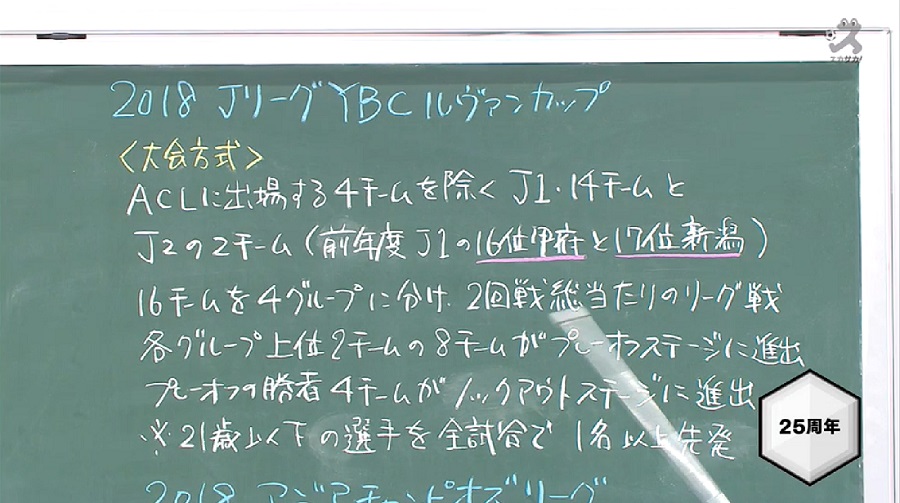 スカサカ!
2018 JリーグYBCルヴァンカップ
<大会方式>
ACLに出場する4チームを除くJ1・14チームと
J2の2チーム(前年度J1の16位甲府と17位新潟)
16チームを4グループに分け、2回戦総当たりのリーグ戦
各グループ上位2チームの8チームがプレーオフステージに進出
プレーオフの勝者4チームがノックアウトステージに進出
※21歳以下の選手を全試合で1名以上先発
25周年
2018 アジアチャンピオンズリーグ